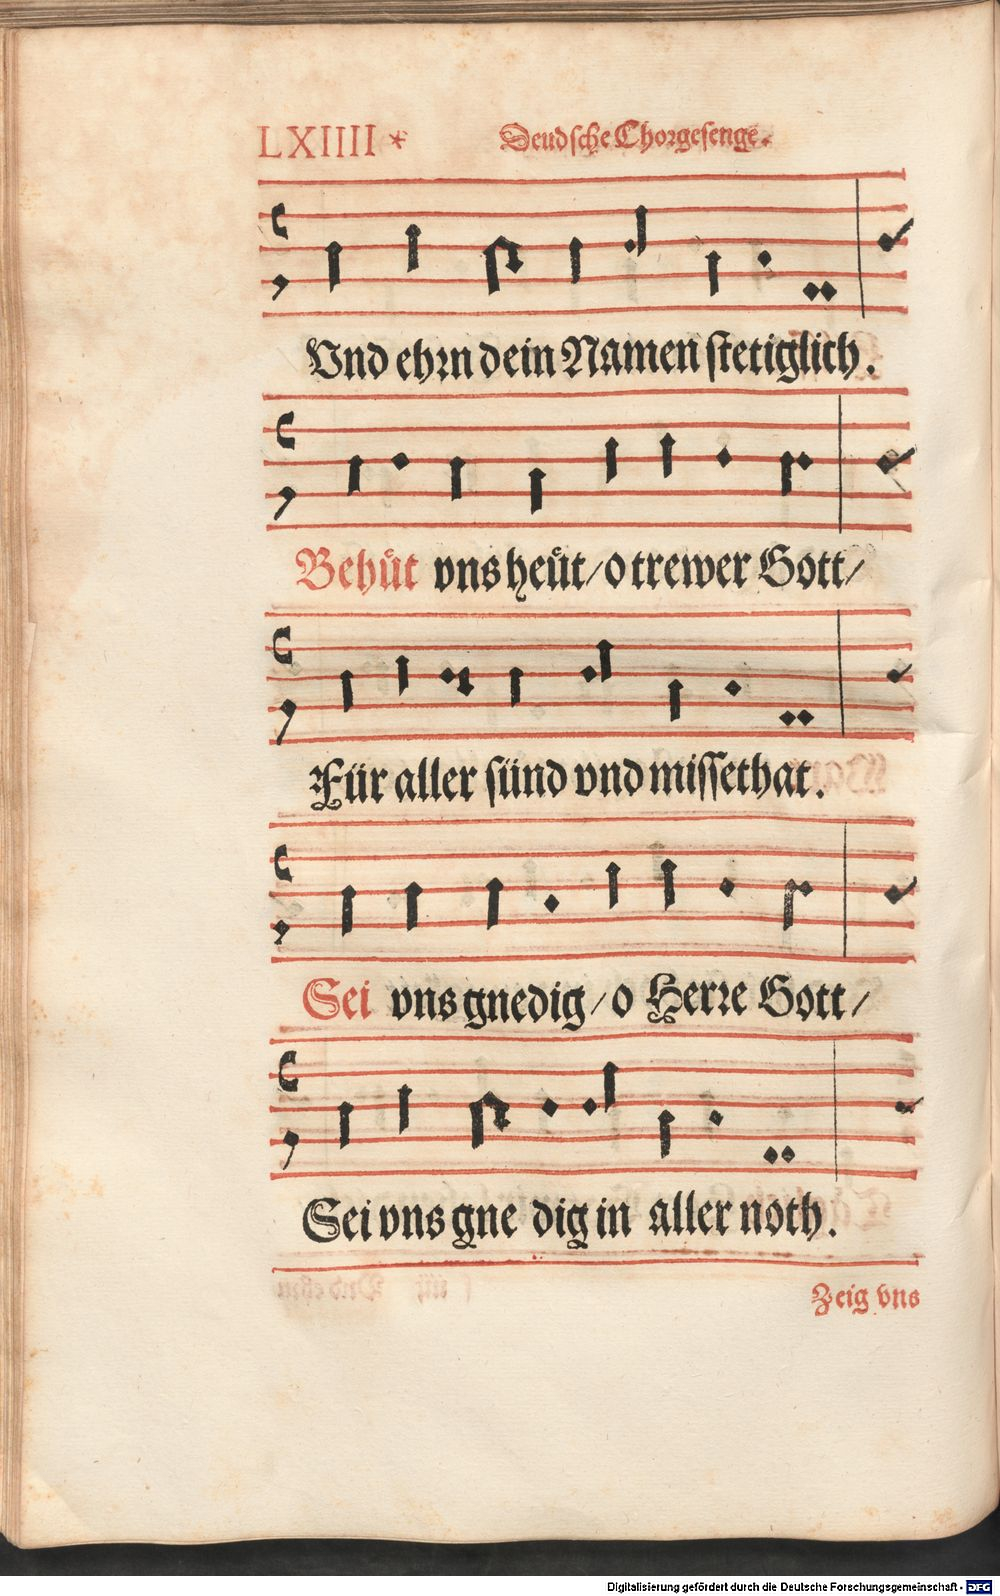 LXIIII * Deudsche Chorgesenge.
Vnd ehrn dein Namen stetiglich.
Behüt vns heüt/ o trewer Gott/
Für aller sünd vnd missethat.
Sei vns gnedig/ o Herre Gott/
Sei vns gne dig in aller noth.
Zeig vns
Digitalisierung gefördert durch die Deutsche Forschungsgemeinschaft - DFG